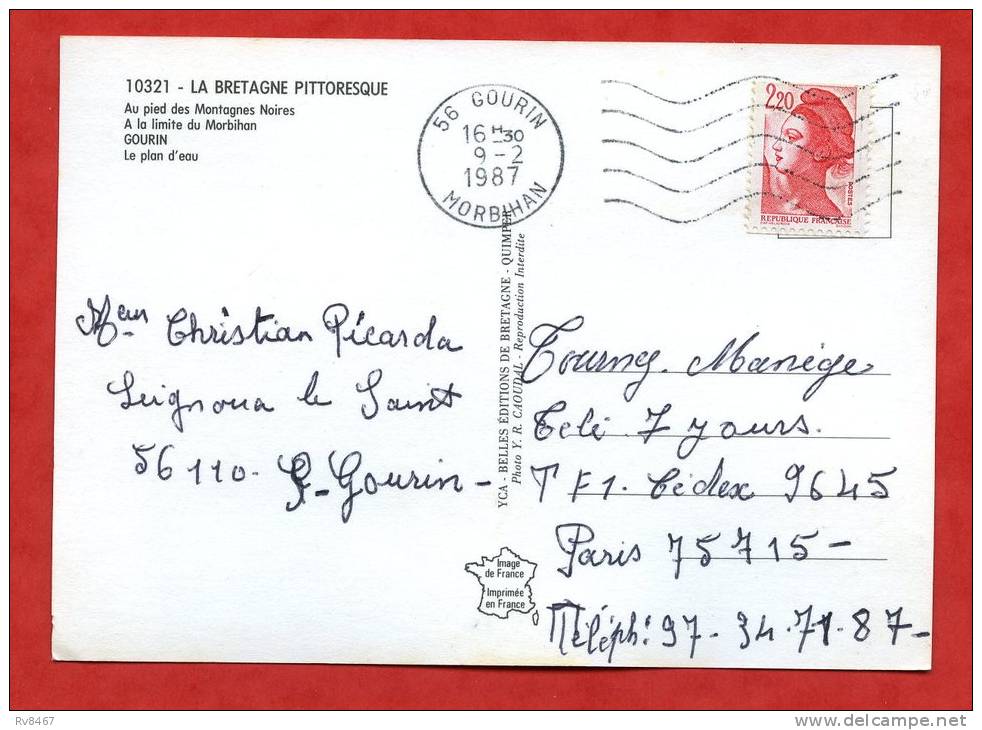 10321 - LA BRETAGNE PITTORESQUE
Au pied des Montagnes Noires
A la limite du Morbihan
GOURIN
Le plan d'eau
56 GOURIN
16 H 30
9-2
1987
MORBIHAN
2,20
POSTES
REPUBLIQUE FRANÇAISE
YCA - BELLES ÉDITIONS DE BRETAGNE - QUIMPER
Photo Y. R. CAOUDAL - Reproduction Interdite
Christian Picarda
le Saint
56110 - Gourin -
Tourney Manège
Telé 7 yours.
TF1. Cédex 9645
Paris 75715 -
Téléph: 97 - 34.71.87 -
Image
de France
Imprimée
en France
Rv8467
www.delcampe.net